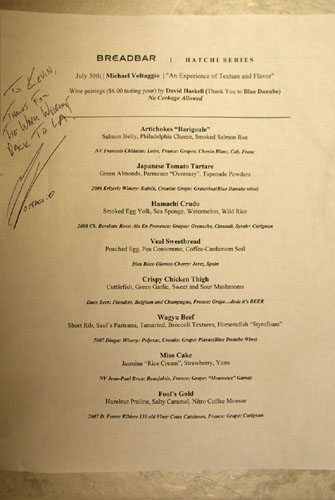 BREADBAR | HATCHI SERIES
July 30th | Michael Voltaggio | "An Experience of Texture and Flavor"
Wine pairings ($6.00 tasting pour) by David Haskell (Thank You to Blue Danube)
No Corkage Allowed
To Kevin,
Thanks for
the warm welcome
back to LA
Artichokes "Barigoule"
Salmon Belly, Philadelphia Cheese, Smoked Salmon Roe
NV Francois Chidaine: Loire, France: Grapes: Chenin Blanc, Cab. Franc
Japanese Tomato Tartare
Green Almonds, Parmesan "Overeasy", Tapenade Powders
2006 Krizevac Winery: Kutnik, Croatia: Grape: (Blue Danube wine)
Hamachi Crudo
Smoked Egg Yolk, Sea Sponge, Watermelon, Wild Rice
2008 Ch. Revelette Rose: Aix En Provence: Grapes: Grenache, Cinsault, Syrah+ Carignan
Veal Sweetbread
Poached Egg, Pea Consomme, Coffee-Cardamom Soil
Dios Baco Oloroso Cherry: Jerez, Spain
Crispy Chicken Thigh
Cuttlefish, Green Garlic, Sweet and Sour Mushrooms
Beer: Flanders, Belgium and Champagne, France: Grape...dude it's BEER
Wagyu Beef
Short Rib, Saul's Pastrami, Tamarind, Broccoli Textures, Horseradish "Styrofoam"
2007 Dingac Winery: Peljesac, Croatia: Grape: Plavac(Blue Danube Wine)
Miso Cake
Jasmine "Rice Cream", Strawberry, Yuzu
NV Jean-Paul Brun: Beaujolais, France: Grape: Gamay
Fool's Gold
Hazelnut Praline, Salty Caramel, Nitro Coffee Mousse
2007 D. Ferrer Ribiere 130 old Vine: Cotes Catalanes, France: Grape: Carignan